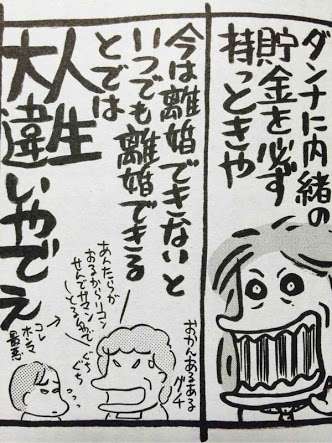 ダンナに内緒の
貯金を必ず
持っときや
今は離婚できないと
いつでも離婚できる
とでは
人生
大違いやでえ
おかんあるある
グチ
あんたらが
おるからリコン
せんでガマン
しとるんやで
ぐち
ぐち
コレ
ホンマ
最悪